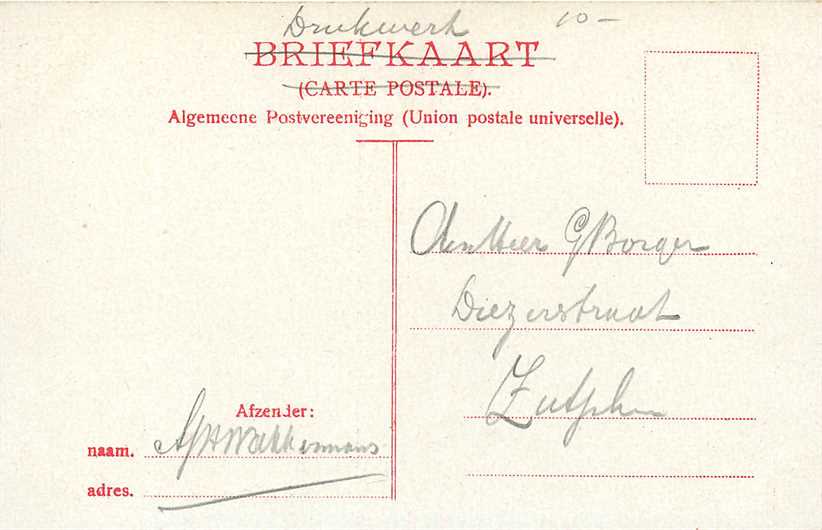 Drukwerk 10-
BRIEFKAART
(CARTE POSTALE).
Algemeene Postvereeniging (Union postale universelle).
Den Heer G Borger
Diezerstraat
Zutphen
Afzender:
naam.
adres.